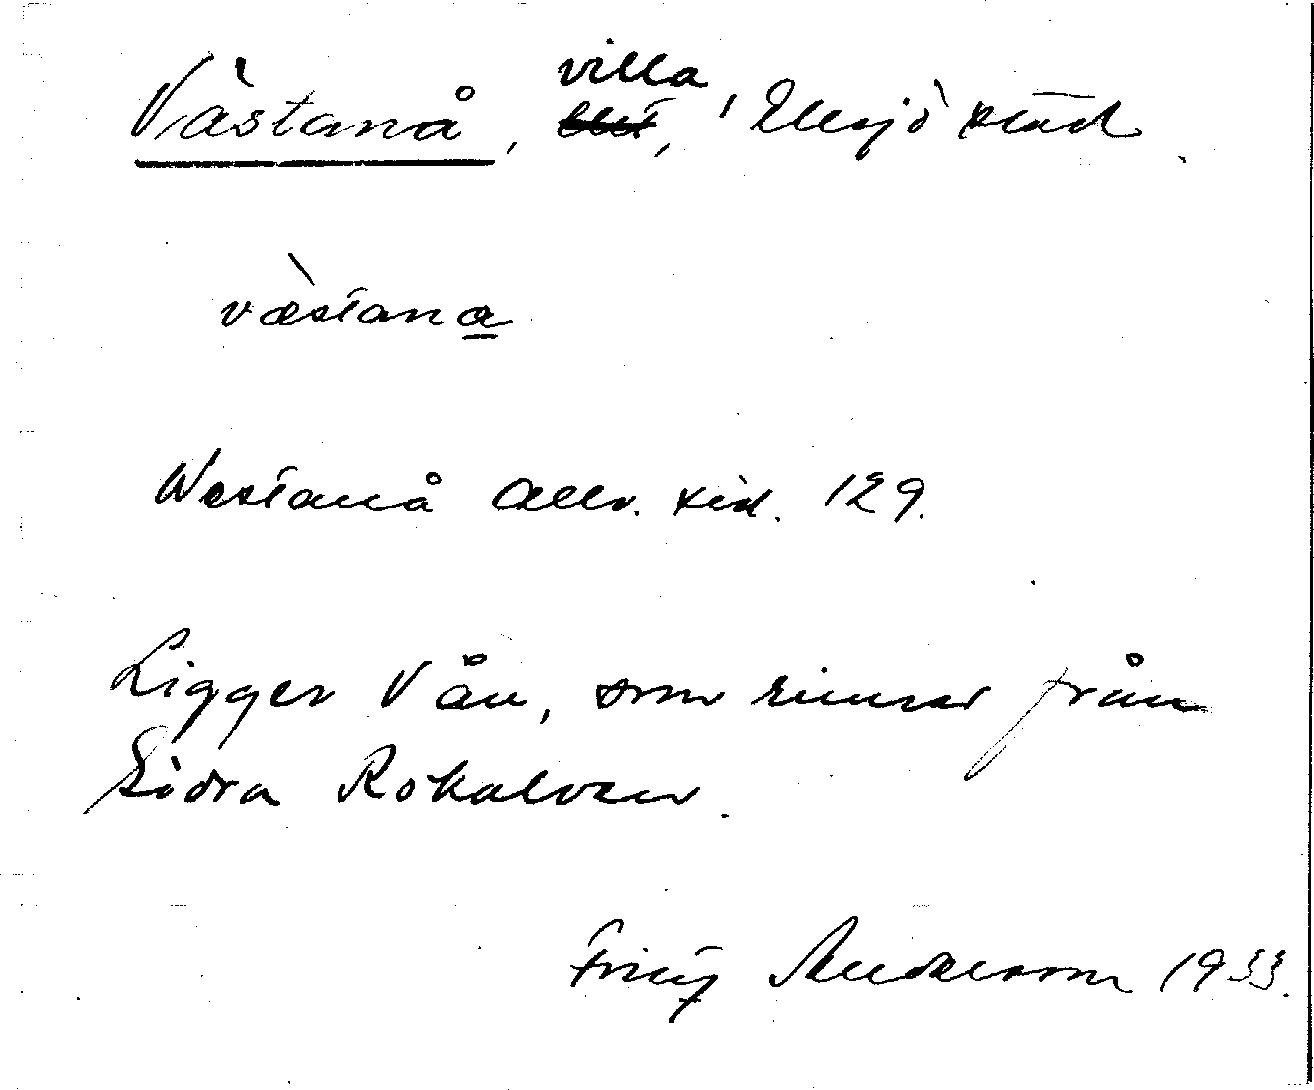 Västanå, villa, Eksjö stad.
væstana
Westanå Allv. sid. 129.
Ligger V ån, som rinner från
Södra Rokalven.
Fritz Anderson 1933.